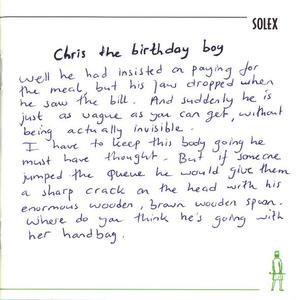 SOLEX
Chris the birthday boy
Well he had insisted on paying for
the meal, but his jaw dropped when
he saw the bill. And suddenly he is
just as vague as you can get, without
being actually invisible.
I have to keep this body going he
must have thought. But if someone
jumped the queue he would give them
a sharp crack on the head with his
enormous wooden, brown wooden spoon.
Where do you think he's going with
her handbag.